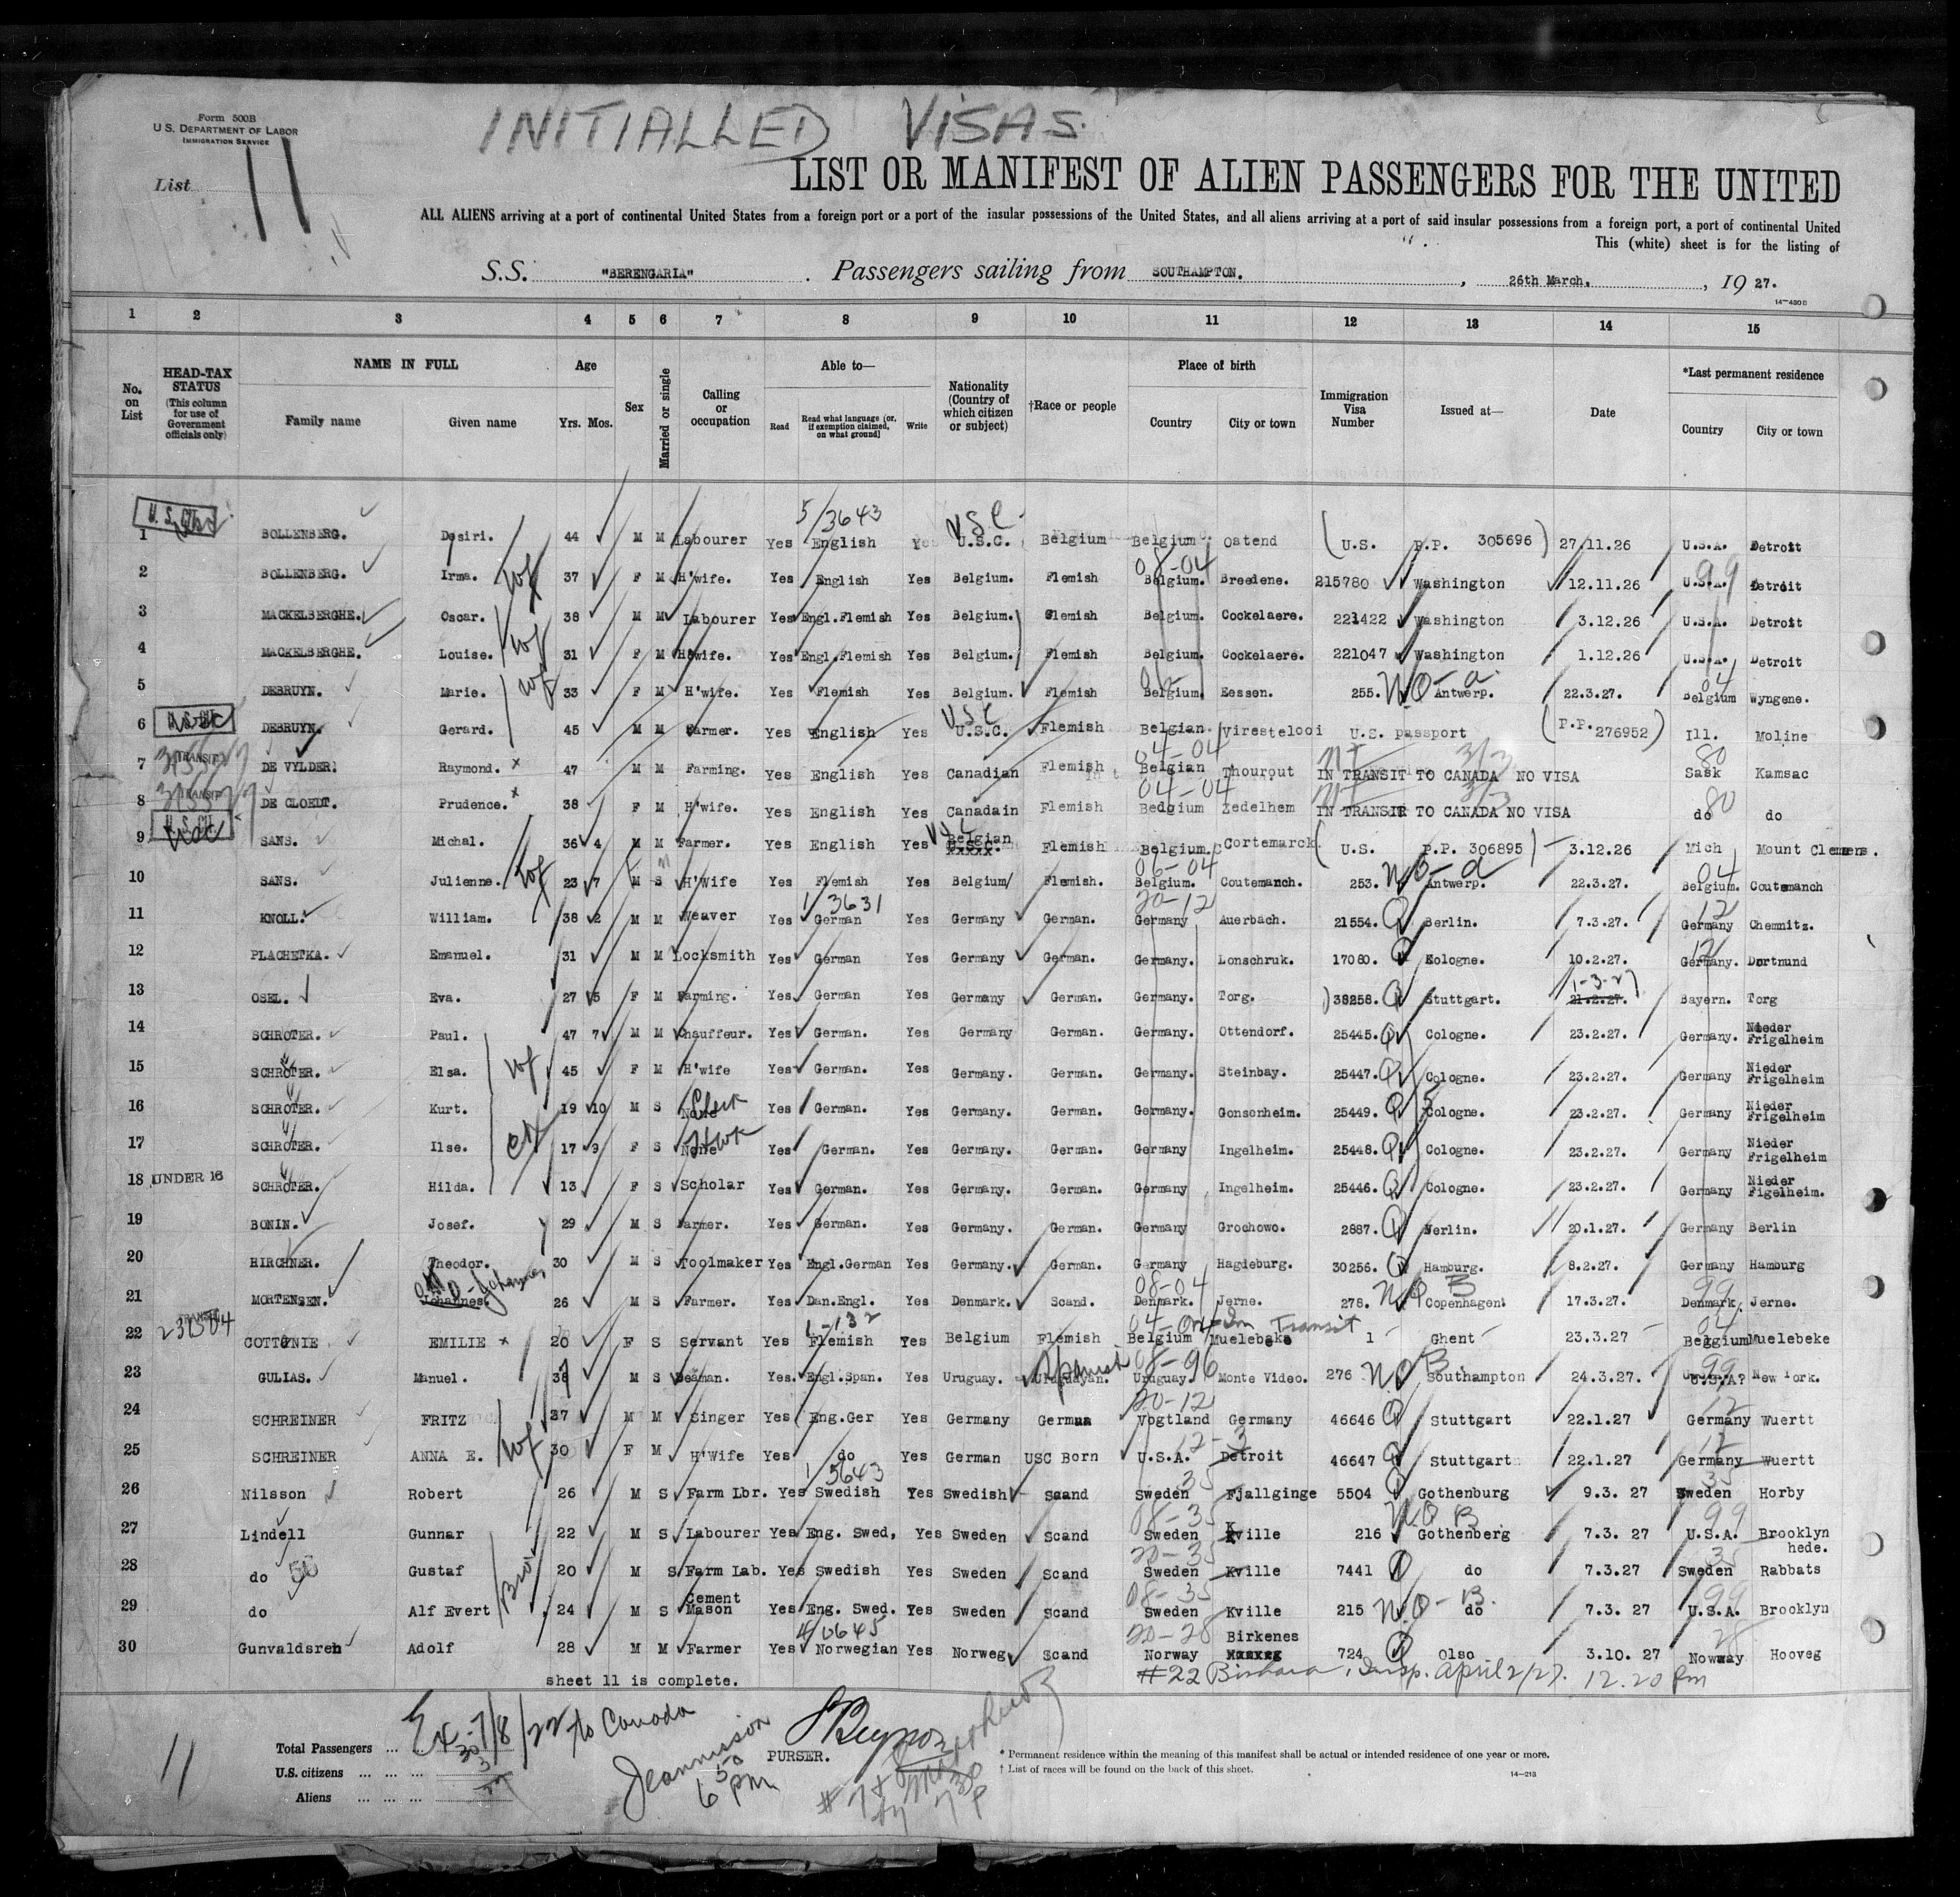 INITIALLED VISAS.
Form 500B
U. S. DEPARTMENT OF LABOR
IMMIGRATION SERVICE
List 11
LIST OR MANIFEST OF ALIEN PASSENGERS FOR THE UNITED
ALL ALIENS arriving at a port of continental United States from a foreign port or a port of the insular possessions of the United States, and all aliens arriving at a port of said insular possessions from a foreign port, a port of continental United
This (white) sheet is for the listing of
S.S. "BERENGARIA" . Passengers sailing from SOUTHAMPTON. , 26th March. , 19 27.
14-430B
1 2 3 4 5 6 7 8 9 10 11 12 13 14 15
No. on List
HEAD-TAX STATUS (This column for use of Government officials only)
NAME IN FULL
Family name Given name
Age
Yrs. Mos.
Sex
Married or single
Calling or occupation
Able to—
Read Read what language (or, if exemption claimed, on what ground) Write
Nationality (Country of which citizen or subject)
†Race or people
Place of birth
Country City or town
Immigration Visa Number
Issued at—
Date
*Last permanent residence
Country City or town
5/3643 U S C
1 BOLLENBERG. Desiri. 44 M M Labourer Yes English Yes U.S.C. Belgium Belgium. Ostend ( U.S. P.P. 305696 ) 27.11.26 U.S.A. Detroit
08-04 99
2 BOLLENBERG. Irma. wf 37 F M H'wife. Yes English Yes Belgium. Flemish Belgium. Breedene. 215780 Washington 12.11.26 U.S.A. Detroit
3 MACKELBERGHE. Oscar. 38 M M Labourer Yes Engl.Flemish Yes Belgium. Flemish Belgium. Cockelaere. 221422 Washington 3.12.26 U.S.A. Detroit
4 MACKELBERGHE. Louise. wf 31 F M H'wife. Yes Engl.Flemish Yes Belgium. Flemish Belgium. Cockelaere. 221047 Washington 1.12.26 U.S.A. Detroit
5 DEBRUYN. Marie. wf 33 F M H'wife. Yes Flemish Yes Belgium. Flemish Belgium. Eessen. 255. NO-a Antwerp. 22.3.27. Belgium Wyngene.
U S C
6 DEBRUYN. Gerard. 45 M M Farmer. Yes English Yes U.S.C. Flemish Belgian Virestelooi U.S. passport (P.P. 276952) Ill. Moline
TRANSIT 04-04 80
7 DE VYLDER. Raymond. x 47 M M Farming. Yes English Yes Canadian Flemish Belgian Thourout IN TRANSIT TO CANADA NO VISA Sask Kamsac
TRANSIT 04-04 80
8 DE CLOEDT. Prudence. x 38 F M H'wife. Yes English Yes Canadain Flemish Bedgium Zedelhem IN TRANSIT TO CANADA NO VISA do do
9 SANS. Michal. 36 4 M M Farmer. Yes English Yes Belgian U.S.C. Flemish Belgium. Cortemarck ( U.S. P.P. 306895 ) 3.12.26 Mich Mount Clemens.
06-04 04
10 SANS. Julienne. wf 23 7 M S H'Wife Yes Flemish Yes Belgium/ Flemish. Belgium. Coutemanch. 253. NO-a Antwerp. 22.3.27. Belgium. Coutemanch
1/3631 20-12 12
11 KNOLL. William. 38 2 M M Weaver Yes German Yes Germany German. Germany Auerbach. 21554. Berlin. 7.3.27. Germany Chemnitz.
12 PLACHETKA. Emanuel. 31 M M Locksmith Yes German Yes Germany German. Germany. Lonschruk. 17080. Kologne. 10.2.27. Germany. Dortmund
1-3-27
13 OSEL. Eva. 27 5 F M Farming. Yes German Yes Germany German. Germany. Torg. 38258. Stuttgart. 21.2.27. Bayern. Torg
14 SCHROTER. Paul. 47 7 M M Chauffeur. Yes German. Yes Germany German. Germany. Ottendorf. 25445. Cologne. 23.2.27. Germany. Nieder Frigelheim
15 SCHROTER. Elsa. wf 45 F M H'wife Yes German. Yes Germany. German. Germany. Steinbay. 25447. Cologne. 23.2.27. Germany Nieder Frigelheim
16 SCHROTER. Kurt. 19 10 M S None Clerk Yes German. Yes Germany. German. Germany. Gonsenheim. 25449. Cologne. 23.2.27. Germany Nieder Frigelheim
17 SCHROTER. Ilse. ch 17 9 F S None Yes German. Yes Germany. German. Germany Ingelheim. 25448. Cologne. 23.2.27. Germany Nieder Frigelheim
18 UNDER 16 SCHROTER. Hilda. 13 F S Scholar Yes German. Yes Germany. German. Germany Ingelheim. 25446. Cologne. 23.2.27. Germany Nieder Figelheim.
19 BONIN. Josef. 29 M S Farmer. Yes German. Yes Germany. German. Germany Grochowo. 2887. Nerlin. 20.1.27. Germany Berlin
20 HIRCHNER. Theodor. 30 M S Toolmaker Yes Engl.German Yes Germany. German. Germany Hagdeburg. 30256. Hamburg. 8.2.27. Germany Hamburg
Otto-Johannes 08-04 NO B 99
21 MORTENSEN. Johannes. 26 M S Farmer. Yes Dan.Engl. Yes Denmark. Scand. Denmark. Jerne. 278. Copenhagen. 17.3.27. Denmark. Jerne.
TRANSIT 1-132 04-04 In Transit 04
22 COTTENIE EMILIE x 20 F S Servant Yes Flemish Yes Belgium Flemish Belgium Muelebeke 1 Ghent 23.3.27 Beggium Muelebeke
Spanish 08-96 99
23 GULIAS. Manuel. 38 M S Seaman. Yes. Engl.Span. Yes Uruguay. Uruguayan. Uruguay. Monte Video. 276 NO B Southampton 24.3.27. U.S.A? New York.
20-12 12
24 SCHREINER FRITZ 37 M M Singer Yes Eng.Ger Yes Germany German Vogtland Germany 46646 Stuttgart 22.1.27 Germany Wuertt
12-3 12
25 SCHREINER ANNA E. wf 30 F M H'Wife Yes do Yes German USC Born U.S.A. Detroit 46647 Stuttgart 22.1.27 Germany Wuertt
1/5643 35 35
26 Nilsson Robert 26 M S Farm Lbr. Yes Swedish Yes Swedish Scand Sweden Fjallginge 5504 Gothenburg 9.3. 27 Sweden Horby
08-35 N.O B 99
27 Lindell Gunnar 22 M S Labourer Yes Eng. Swed, Yes Sweden Scand Sweden Kville 216 Gothenberg 7.3. 27 U.S.A. Brooklyn
20-35 35 hede.
28 do Gustaf 20 M S Farm Lab. Yes Swedish Yes Sweden Scand Sweden Kville 7441 do 7.3.27 Sweden Rabbats
08-35 99
29 do Alf Evert Bro 24 M S Cement Mason Yes Eng. Swed. Yes Sweden Scand Sweden Kville 215 N.O-B. do 7.3. 27 U.S.A. Brooklyn
4/0645 20-28 Birkenes 28
30 Gunvaldsren Adolf 28 M M Farmer Yes Norwegian Yes Norweg Scand Norway 724 Olso 3.10. 27 Nowway Hooveg
sheet 11 is complete.
#22 Insp. April 2/27. 12.20 pm
11
Ex-7/8/22 to Canada
Jeannisson
6 50 pm
PURSER.
Total Passengers ... ... 30
U.S. citizens ... ... ... 3
Aliens ... ... ... 27
* Permanent residence within the meaning of this manifest shall be actual or intended residence of one year or more.
† List of races will be found on the back of this sheet.
14-213